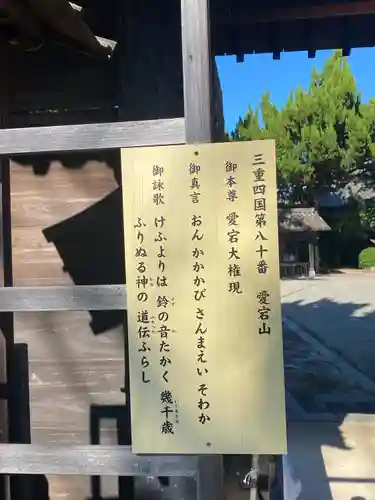 三重四国第八十番　愛宕山
御本尊　愛宕大権現
御真言　おん かかかび さんまえい そわか
御詠歌　けふよりは 鈴の音たかく 幾千歳
ふりぬる神の 道伝ふらし